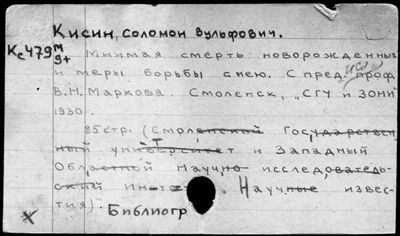 Кисин, Соломон Вульфович.
Кс479м
9+
Мнимая смерть новорожденных
и меры борьбы с нею. С пред. проф.
В.Н. Маркова. Смоленск, „СГУ и ЗОНИ"
1930.
85 стр. (Смоленский Государствен-
ный университет и Западный
Областной Научно исследователь-
ский Инст. Научные извес-
тия). Библиогр